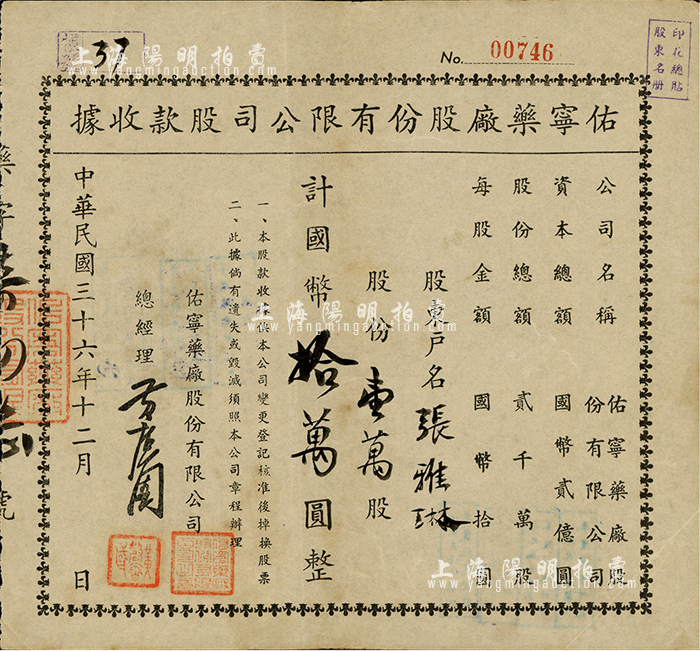 37
No. 00746
印花總貼
股東名册
佑寧藥廠股份有限公司股款收據
公司名稱 佑寧藥廠股份有限公司
資本總額 國幣貳億圓
股份總額 貳千萬股
每股金額 國幣拾圓
股東戶名 張雅琳
股份壹萬股
計國幣拾萬圓整
一、本股款收據俟本公司變更登記核准後掉換股票
二、此據倘有遺失或毀滅須照本公司章程辦理
佑寧藥廠股份有限公司
總經理
中華民國三十六年十二月 日
藥字
號
上海陽明拍賣
www.yangmingauction.com
上海陽明拍賣
www.yangmingauction.com
上海陽明拍賣
www.yangmingauction.com